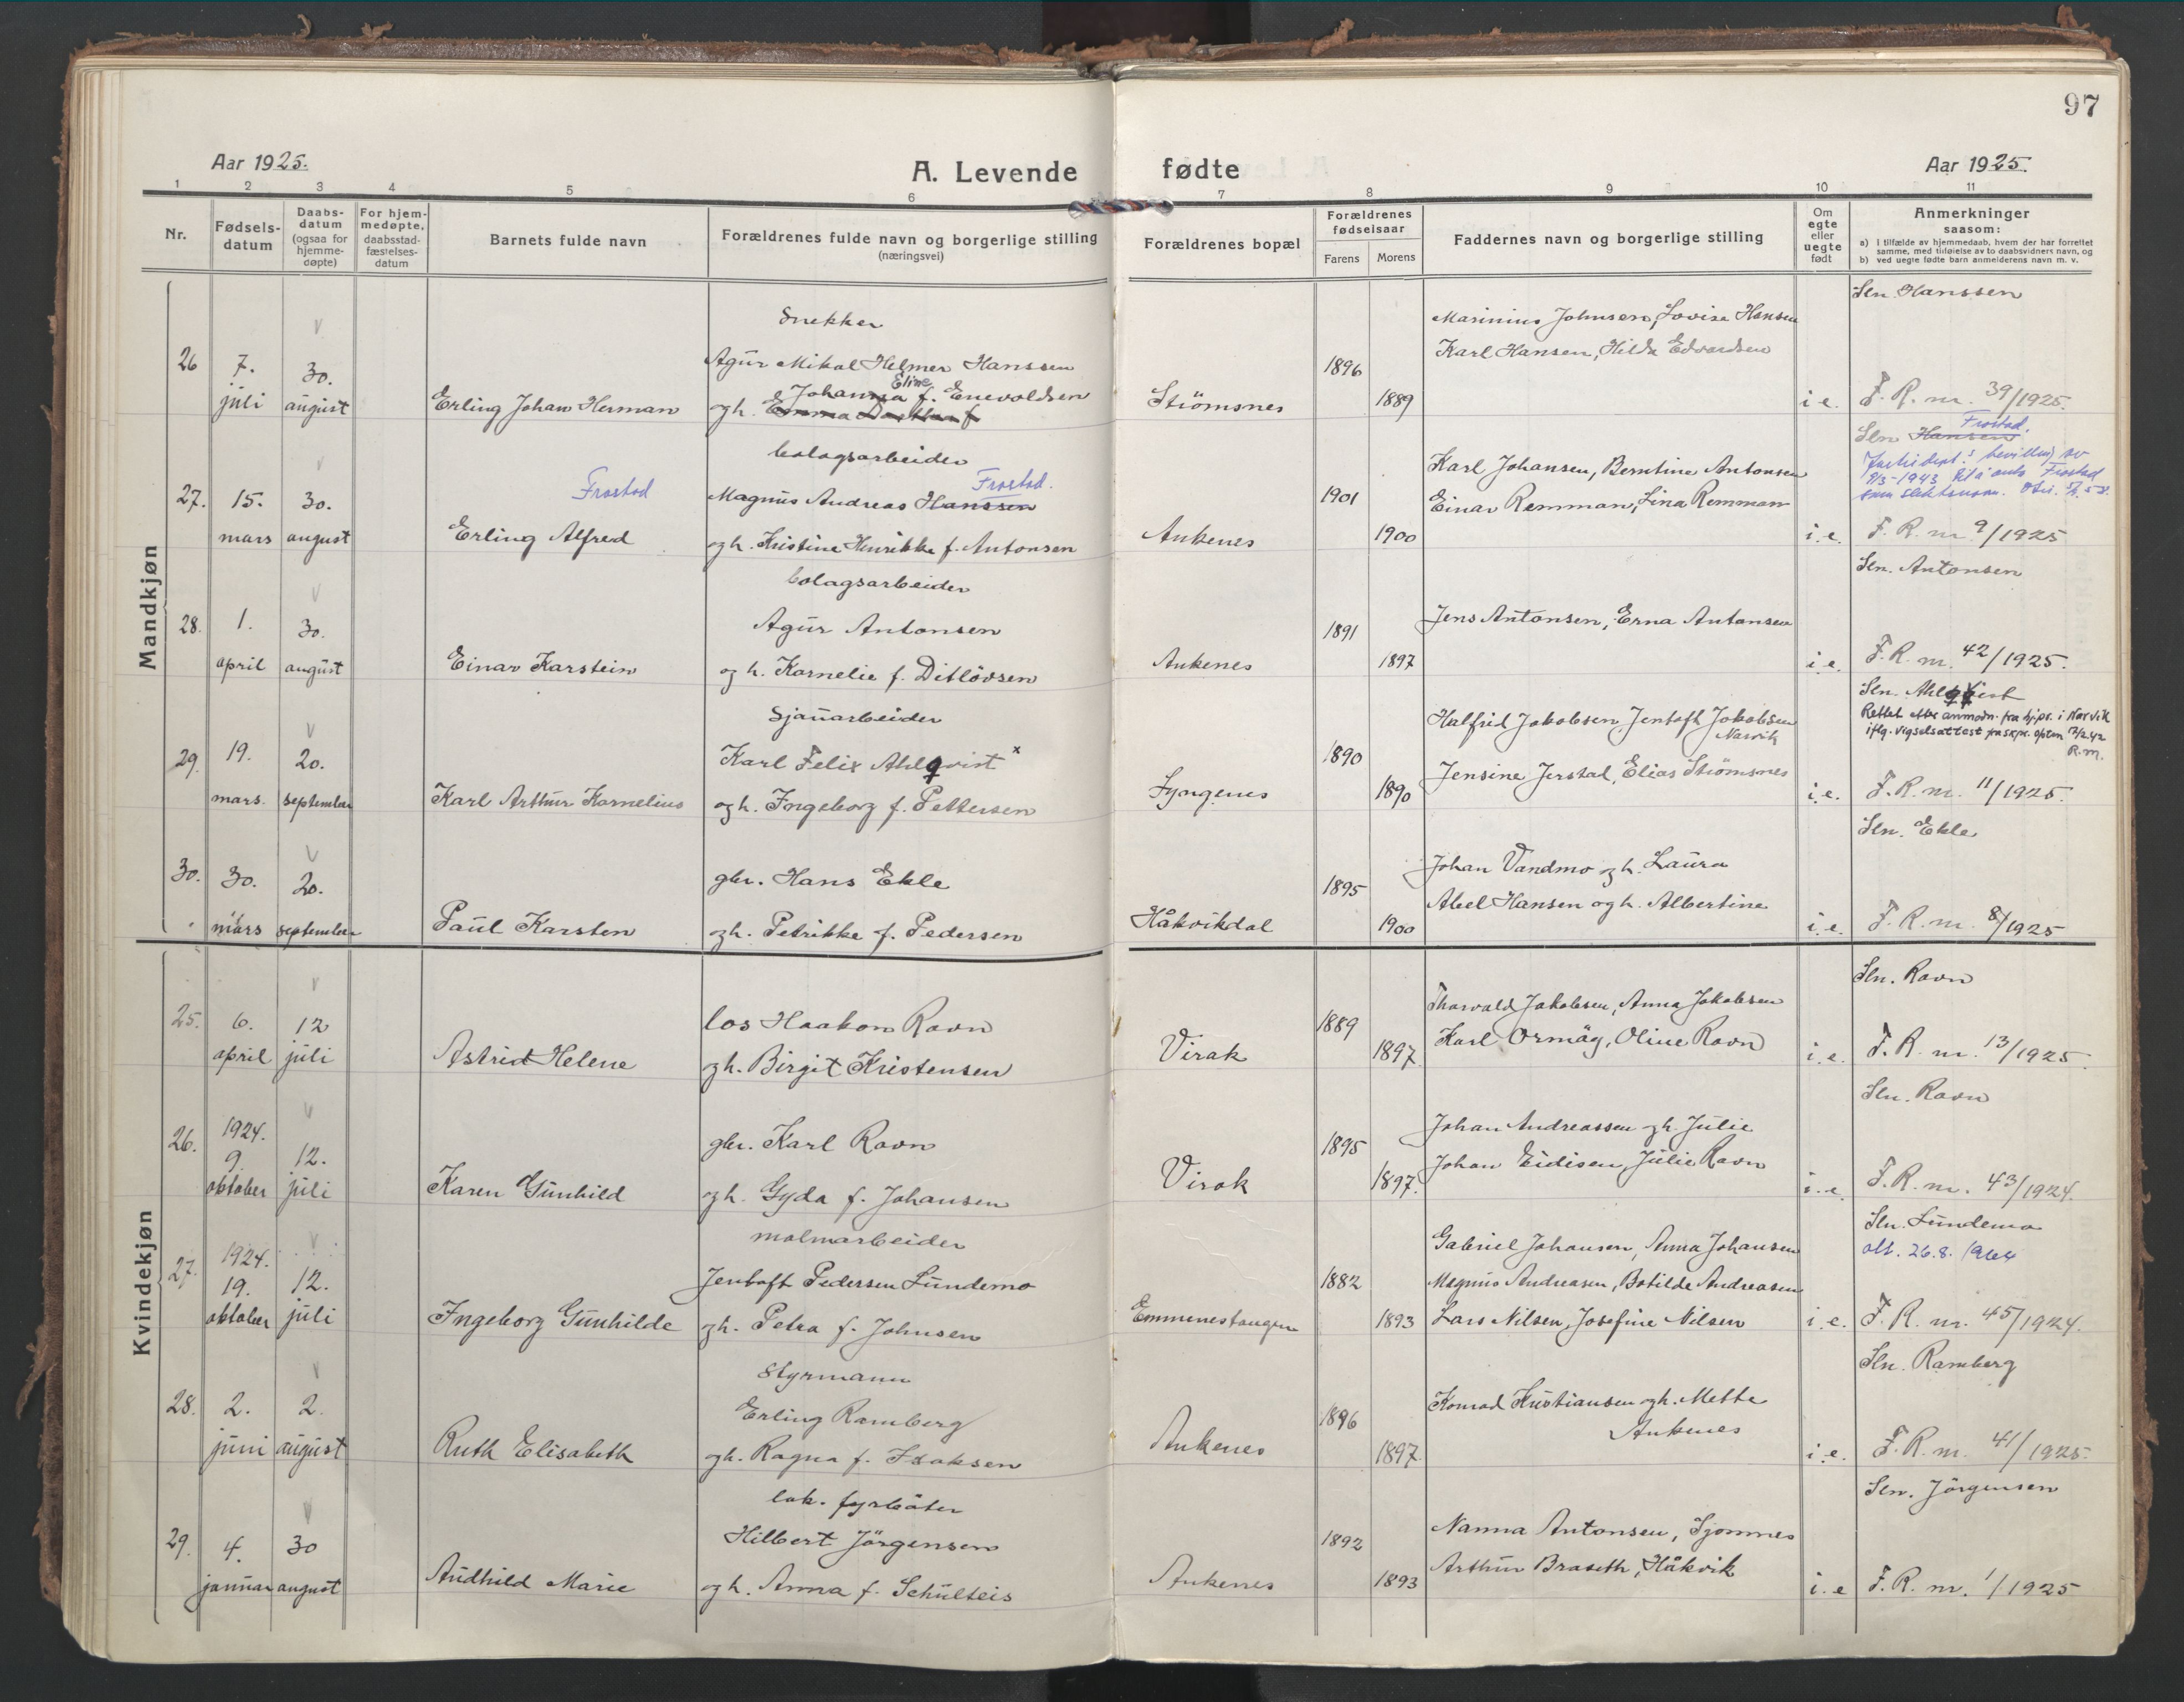 97
Aar 1925.
A. Levende fødte
Aar 1925.
1 2 3 4 5 6 7 8 9 10 11
Nr.
Fødsels-
datum
Daabs-
datum
(ogsaa for
hjemme-
døpte)
For hjem-
medøpte,
daabsstad-
fæstelses-
datum
Barnets fulde navn
Forældrenes fulde navn og borgerlige stilling
(næringsvei)
Forældrenes bopæl
Forældrenes
fødselsaar
Farens
Morens
Faddernes navn og borgerlige stilling
Om
egte
eller
uegte
født
Anmerkninger
saasom:
a) I tilfælde av hjemmedaab, hvem der har forrettet
samme, med tilføielse av to daabsvidners navn, og
b) ved uegte fødte barn anmelderens navn m. v.
Mandkjøn
26
7.
juli
30.
august
Erling Johan Herman
Snekker
Agur Mikal Helmer Hanssen
Eline
Johanna f. Enevoldsen
og h. Emma
Strömsnes
1896
1889
Marinius Johnsen, Lovise Hansen
Karl Hansen, Hilda Edvardsen
i.e.
Sln. Hanssen
F. R. nr. 39/1925.
27.
15.
mars
30.
august
Frostad
Erling Alfred
bolagsarbeider
Frostad.
Magnus Andreas Hanssen
og h. Kristine Henrikke f. Antonsen
Ankenes
1901
1900
Karl Johansen, Berntine Antonsen
Einar Remman, Lina Remman
i.e.
Frostad.
Sln Hansen
Justisdept.s bevilling av
9/3-1943 til å anta Frostad
som slektsnavn.
F. R. nr. 9/1925
28.
1.
april
30.
august
Einar Karstein
bolagsarbeider
Agur Antonsen
og h. Kornelie f. Ditlövsen
Ankenes
1891
1897
Jens Antonsen, Erna Antonsen
i.e.
Sln. Antonsen
F. R. nr. 42/1925.
29.
19.
mars.
20.
september
Karl Arthur Kornelius
Sjauarbeider
Karl Felix Ahlqvist x
og h. Ingeborg f. Pettersen
Lyngenes
1890
1890
Halfrid Jakobsen, Jentoft Jakobsen
Narvik
Jensine Jerstad, Elias Strömsnes
i.e.
Sln. Ahlqvist
Rettet etter anmodn. fra hj.pr. i Narvik
iflg. vigselsattest fra skpr.
R.m.
F. R. nr. 11/1925.
30.
30.
mars
20.
september
Paul Karsten
gbr. Hans Ekle
og h. Petrikke f. Pedersen
Håkvikdal
1895
1900
Johan Vandmo og h. Laura
Abel Hansen og h. Albertine
i.e.
Sln. Ekle
F. R. nr. 8/1925
Kvindekjøn
25.
6.
april
12
juli
Astrid Helene
los Haakon Ravn
og h. Birgit Kristensen
Virak
1889
1897.
Thorvald Jakobsen, Anna Jakobsen
Karl Ormåg, Oline Ravn
i.e.
Sln. Ravn
F. R. nr. 13/1925.
26.
1924.
9.
oktober
12.
juli
Karen Gunhild
gbr. Karl Ravn
og h. Gyda f. Johansen
Virak
1895
1897.
Johan Andreassen og h. Julie
Johan Eidisen, Julie Ravn
i.e.
Sln. Ravn
F. R. nr. 43/1924.
27.
1924.
19.
oktober
12.
juli
Ingeborg Gunhilde
malmarbeider
Jentoft Pedersen Lundemo
og h. Petra f. Johnsen
Emmenestangen
1882
1893
Gabriel Johansen, Anna Johansen
Magnus Andreasen, Botilde Andreasen
Lars Nilsen, Josefine Nilsen
i.e.
Sln. Lundemo
att. 26.8. 1964
F. R. nr. 45/1924.
28.
2.
juni
2.
august
Ruth Elisabeth
Styrmann
Erling Ramberg
og h. Ragna f. Isaksen
Ankenes
1896
1897.
Konrad Kristiansen og h. Mette
Ankenes
i.e.
Sln. Ramberg
F. R. nr. 41/1925.
29.
4.
januar
30
august
Audhild Marie
lok. fyrböter
Hilbert Jörgensen
og h. Anna f. Schulteis
Ankenes
1892
1893
Nanna Antonsen, Sjomnes
Arthur Braseth, Håkvik
i.e
Sln. Jörgensen
F. R. nr. 1/1925